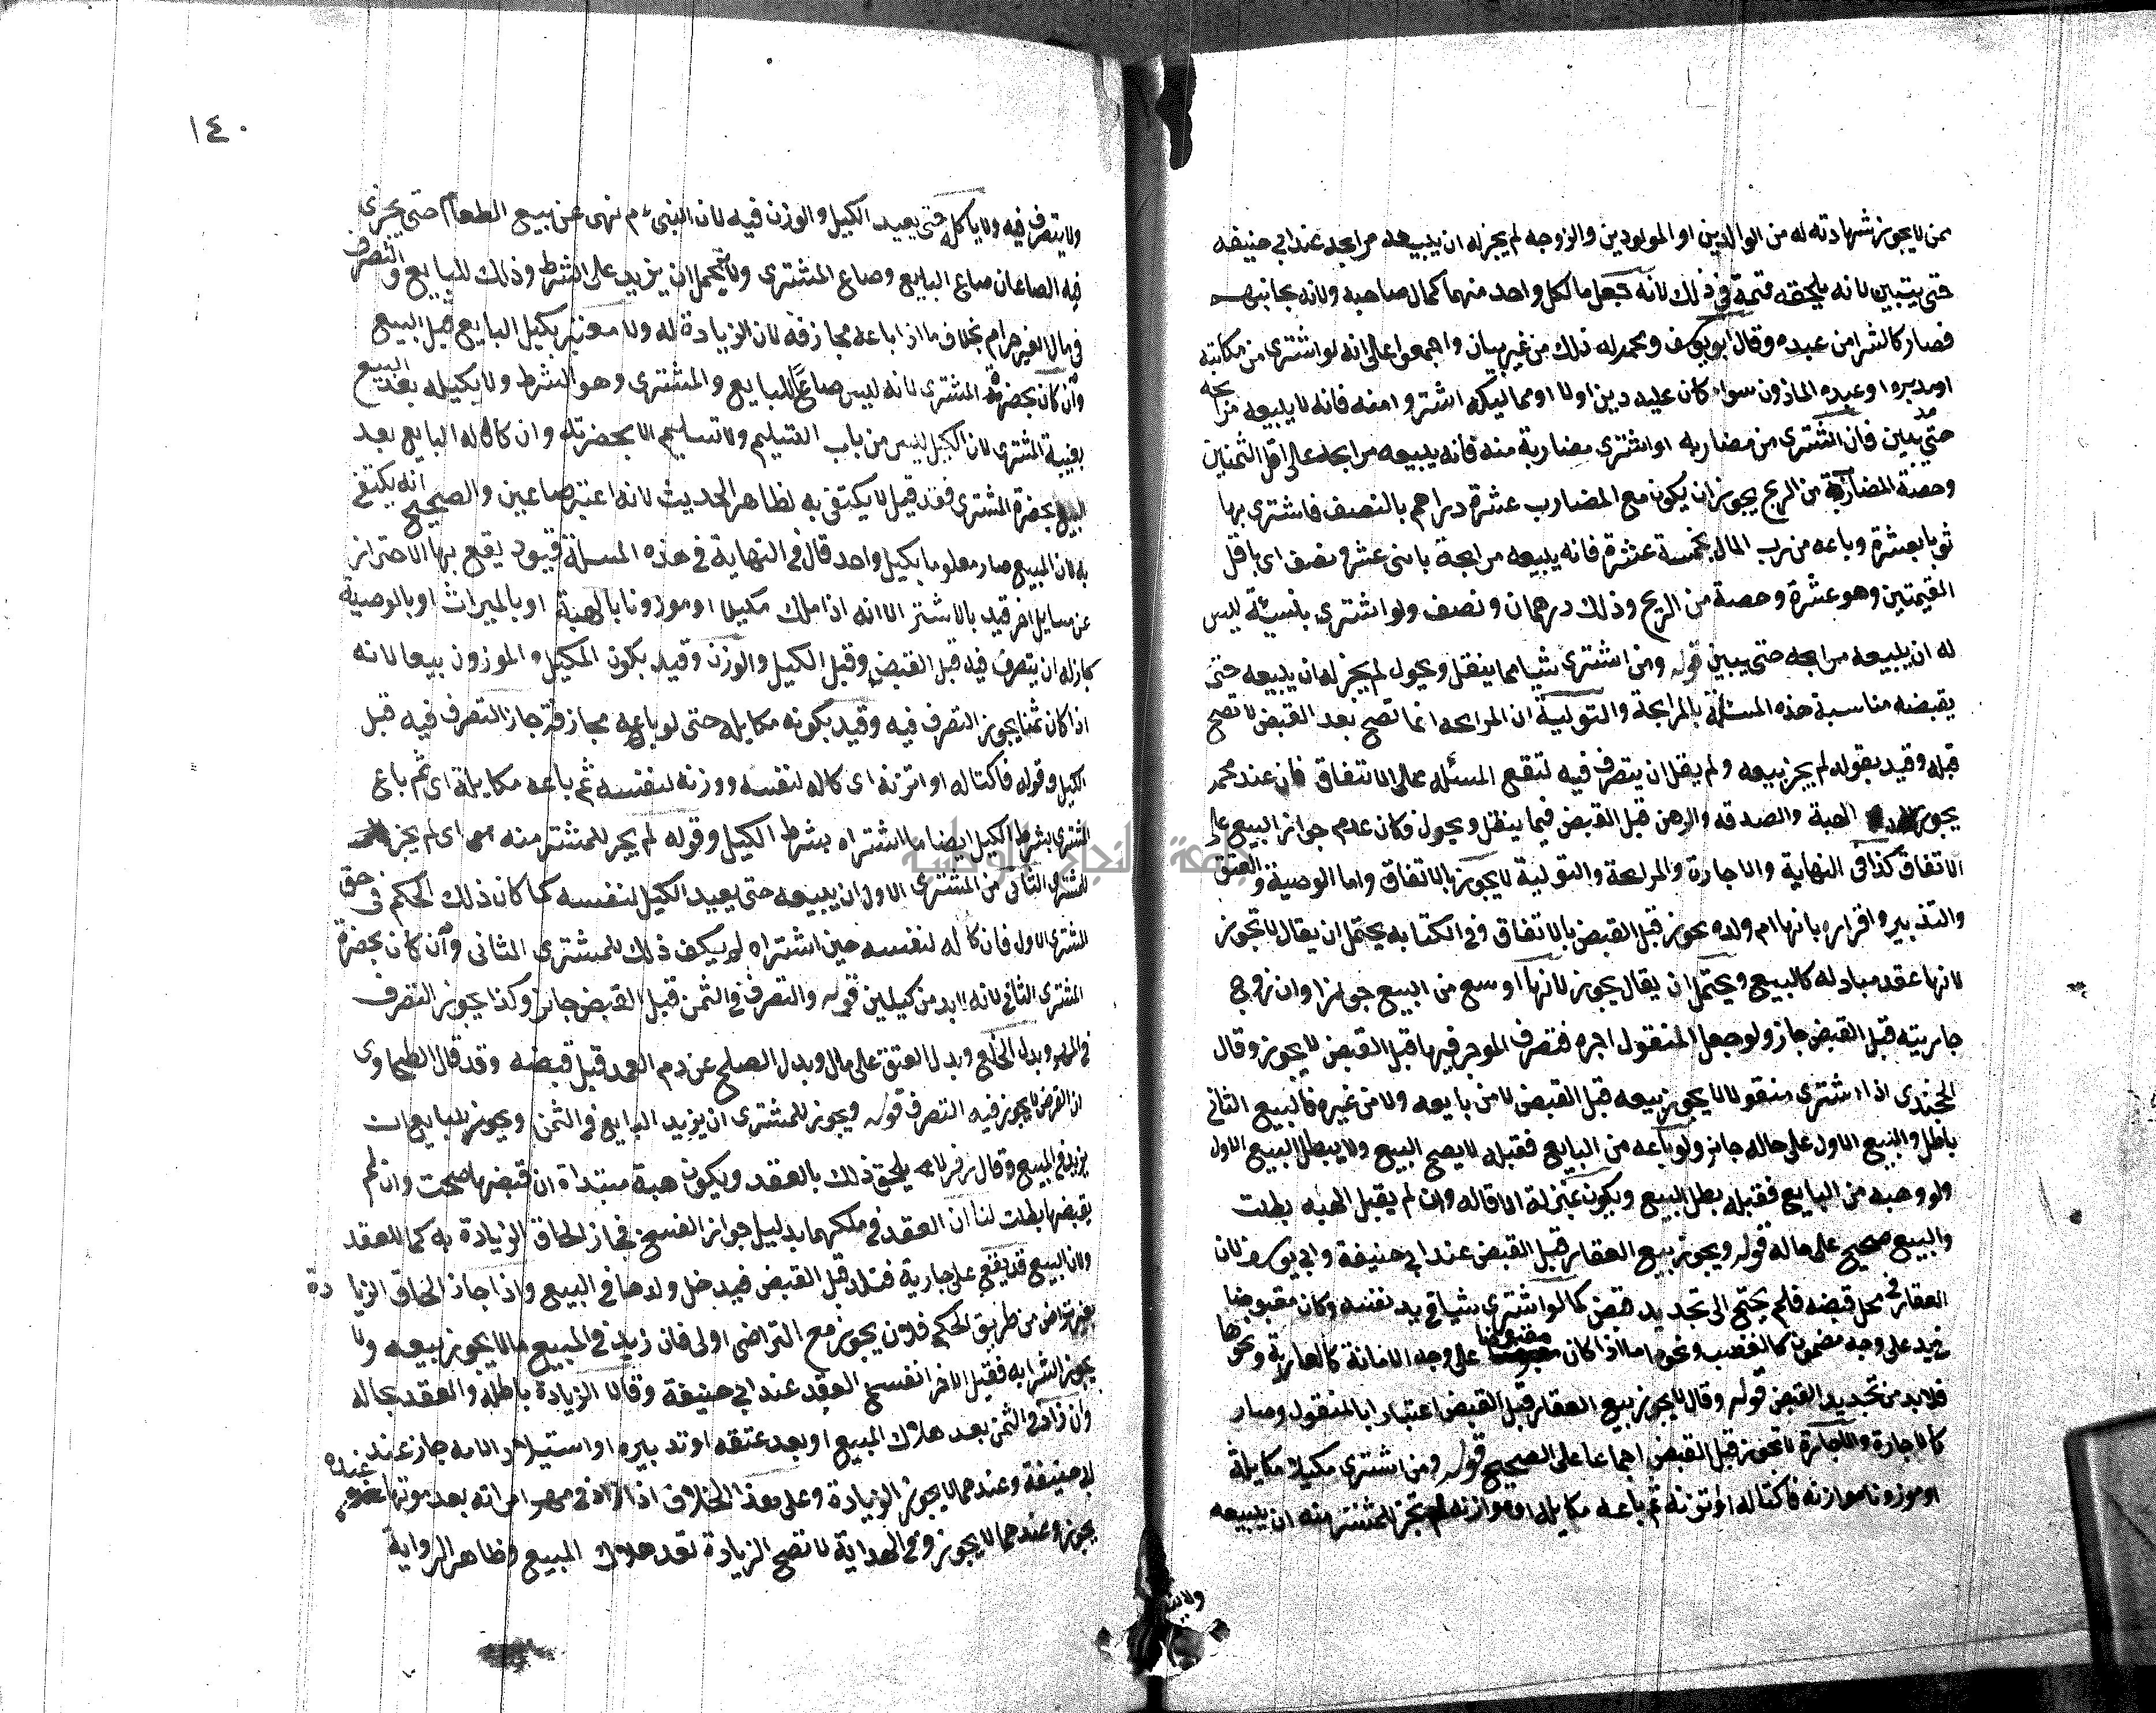 ممن لا يجوز شهادته له من الوالدين او المولودين والزوجه لم يجز له ان يبيعه مرابحه عند ابي حنيفه
حتى يتبين لانه يلحقه تهمة في ذلك لانه جعل مال كل واحد منهما كمال صاحبه ولانه يحابيه
فصار كالشرا من عبده وقال ابو يوسف ومحمد له ذلك من غير بيان واجمعوا على انه لو اشترى من مكاتبه
او مدبره او عبده الماذون سواء كان عليه دين اولا او مماليكه اشتروا منه فانه لا يبيعه مرابحه
حتى يبين فان اشترى من مضاربه او اشترى مضاربة منه فانه يبيعه مرابحه على اقل الثمنين
وحصة المضارب من الربح يجوز ان يكون مع المضارب عشرة دراهم بالنصف فاشترى بها
ثوبا بعشرة وباعه من رب المال بخمسة عشرة فانه يبيعه مرابحة باثنى عشر ونصف اى باقل
القيمتين وهو عشرة وحصة من الربح وذلك درهمان ونصف ولو اشترى بنسيئة ليس
له ان يبيعه مرابحه حتى يبين قوله ومن اشترى شيا مما ينقل ويحول لم يجز له ان يبيعه حتى
يقبضه مناسبة هذه المسئلة بالمرابحة والتولية ان المرابحه انما تصح بعد القبض لا تصح
قبله وقيد بقوله لم يجز بيعه ولم يقل ان يتصرف فيه لتقع المسئله على الاتفاق فان عند محمد
يجوز الهبة والصدقه والرهن قبل القبض فيما ينقل ويحول فكان عدم جواز البيع على
الاتفاق كذا في النهاية والاجارة والمرابحة والتولية لا يجوز بالاتفاق واما الوصية والعتق
والتدبير واقراره بانها ام ولده يجوز قبل القبض بالاتفاق وفي الكتابه يحتمل ان يقال لا تجوز
لانها عقد مبادله كالبيع ويحتمل ان يقال يجوز لانها اوسع من البيع جوازا وان زوج
جاريته قبل القبض جاز ولو جعل المنقول اجره فتصرف الموجر فيها قبل القبض لا يجوز وقال
الخجندى اذا اشترى منقولا لا يجوز بيعه قبل القبض لا من بايعه ولا من غيره فالبيع الثاني
باطل والبيع الاول على حاله جايز ولو باعه من البايع فقبله لا يصح البيع ولا يبطل البيع الاول
ولو وهبه من البايع فقبله بطل البيع ويكون بمنزلة الاقاله وان لم يقبل الهبه بطلت
والبيع صحيح على حاله قوله ويجوز بيع العقار قبل القبض عند ابي حنيفة وابي يوسف لان
العقار في محل قبضه فلم يحتج الى تجديد قبض كما لو اشترى شيا في يد نفسه وكان مقبوضا
في يد على وجه مضمون كالغصب ونحوه اما اذا كان مقبوضا على وجه الامانة كالعارية ونحوها
فلا بد من تجديد القبض قوله وقال لا يجوز بيع العقار قبل القبض اعتبارا بالمنقول وصار
كالاجارة والاجارة لا تجوز قبل القبض اجماعا على الصحيح قوله ومن اشترى مكيلا مكايلة
او موزونا موازنه فاكتاله او اتزنه ثم باعه مكايله او موازنه لم تجز للمشتر منه ان يبيعه
ولايت
١٤٠
ولا يتصرف فيه ولا ياكله حتى يعيد الكيل والوزن فيه لان النبي م نهى عن بيع الطعام حتى يجرى
فيه الصاعان صاع البايع وصاع المشترى ولانه يحتمل ان يزيد على الشرط وذلك للبايع والتصرف
في مال الغير حرام بخلاف ما اذا باعه مجازفة لان الزيادة له ولا معتبر بكيل البايع قبل البيع
وان كان بحضرة المشترى لانه ليس صاع البايع والمشترى وهو الشرط ولا بكيله بعد البيع
بغيبة المشترى لان الكيل ليس من باب التسليم ولا تسليم الا بحضرته وان كاله البايع بعد
البيع بحضرة المشترى فقد قيل لا يكتفى به لظاهر الحديث لانه اعتبر صاعين والصحيح انه يكتفى
به لان المبيع صار معلوما بكيل واحد قال في النهاية في هذه المسلة قيود يقع بها الاحتراز
عن مسايل اخر قيد بالاشتر الا انه اذا ملك مكيلا او موزونا بالهبة او بالميراث او بالوصية
جاز له ان يتصرف فيه قبل القبض وقبل الكيل والوزن وقيد بكون المكيل والموزون بيعا لانه
اذا كان ثمنا يجوز التصرف فيه وقيد بكونه مكايله حتى لو باعه مجازفة جاز التصرف فيه قبل
الكيل وقوله فاكتاله او اتزنه اى كاله لنفسه ووزنه لنفسه ثم باعه مكايلة اى ثم باع
المشترى بشرط الكيل ايضا ما اشتراه بشرط الكيل وقوله لم يجز للمشتر منه اى لم يجز
للمشترى الثاني من المشترى الاول ان يبيعه حتى يعيد الكيل لنفسه كما كان ذلك الحكم في حق
المشترى الاول فان كاله لنفسه حين اشتراه لم يكف ذلك للمشترى الثاني وان كان بحضرة
المشترى الثاني لانه لا بد من كيلين قوله والتصرف في الثمن قبل القبض جائز وكذا يجوز التصرف
في المهر وبدل الخلع وبدل العتق على مال وبدل الصلح عن دم العمد قبل قبضه وقد قال الطحاوى
ان القرض لا يجوز فيه التصرف قوله ويجوز للمشترى ان يزيد البايع في الثمن ويجوز للبايع ان
يزيد في المبيع وقال زفر لا يلحق ذلك بالعقد ويكون هبة مبتداة ان قبضها صحت وان لم
يقبضها بطلت لنا ان العقد في ملكهما بدليل جواز الفسخ فجاز الحاق الزيادة به كما للعقد
ولان البيع قد يقع على جارية فتلد قبل القبض فيدخل ولدها في البيع واذا جاز الحاق الزيادة
بغير تراض من طريق الحكم فلان يجوز مع التراضى اولى فان زيد في المبيع ما لا يجوز بيعه ولا
يجوز الشرا به فقبل الاخر انفسخ العقد عند ابي حنيفة وقالا الزيادة باطلة والعقد بحاله
وان زاد في الثمن بعد هلاك المبيع او بعد عتقه او تدبيره او استيلاد الامه جاز عند
ابي حنيفة وعندهما لا يجوز الزيادة وعلى هذا الخلاف اذا زاد في مهر امراته بعد موتها عنده
يجوز وعندهما لا يجوز وفي الهداية لا تصح الزيادة بعد هلاك المبيع في ظاهر الرواية